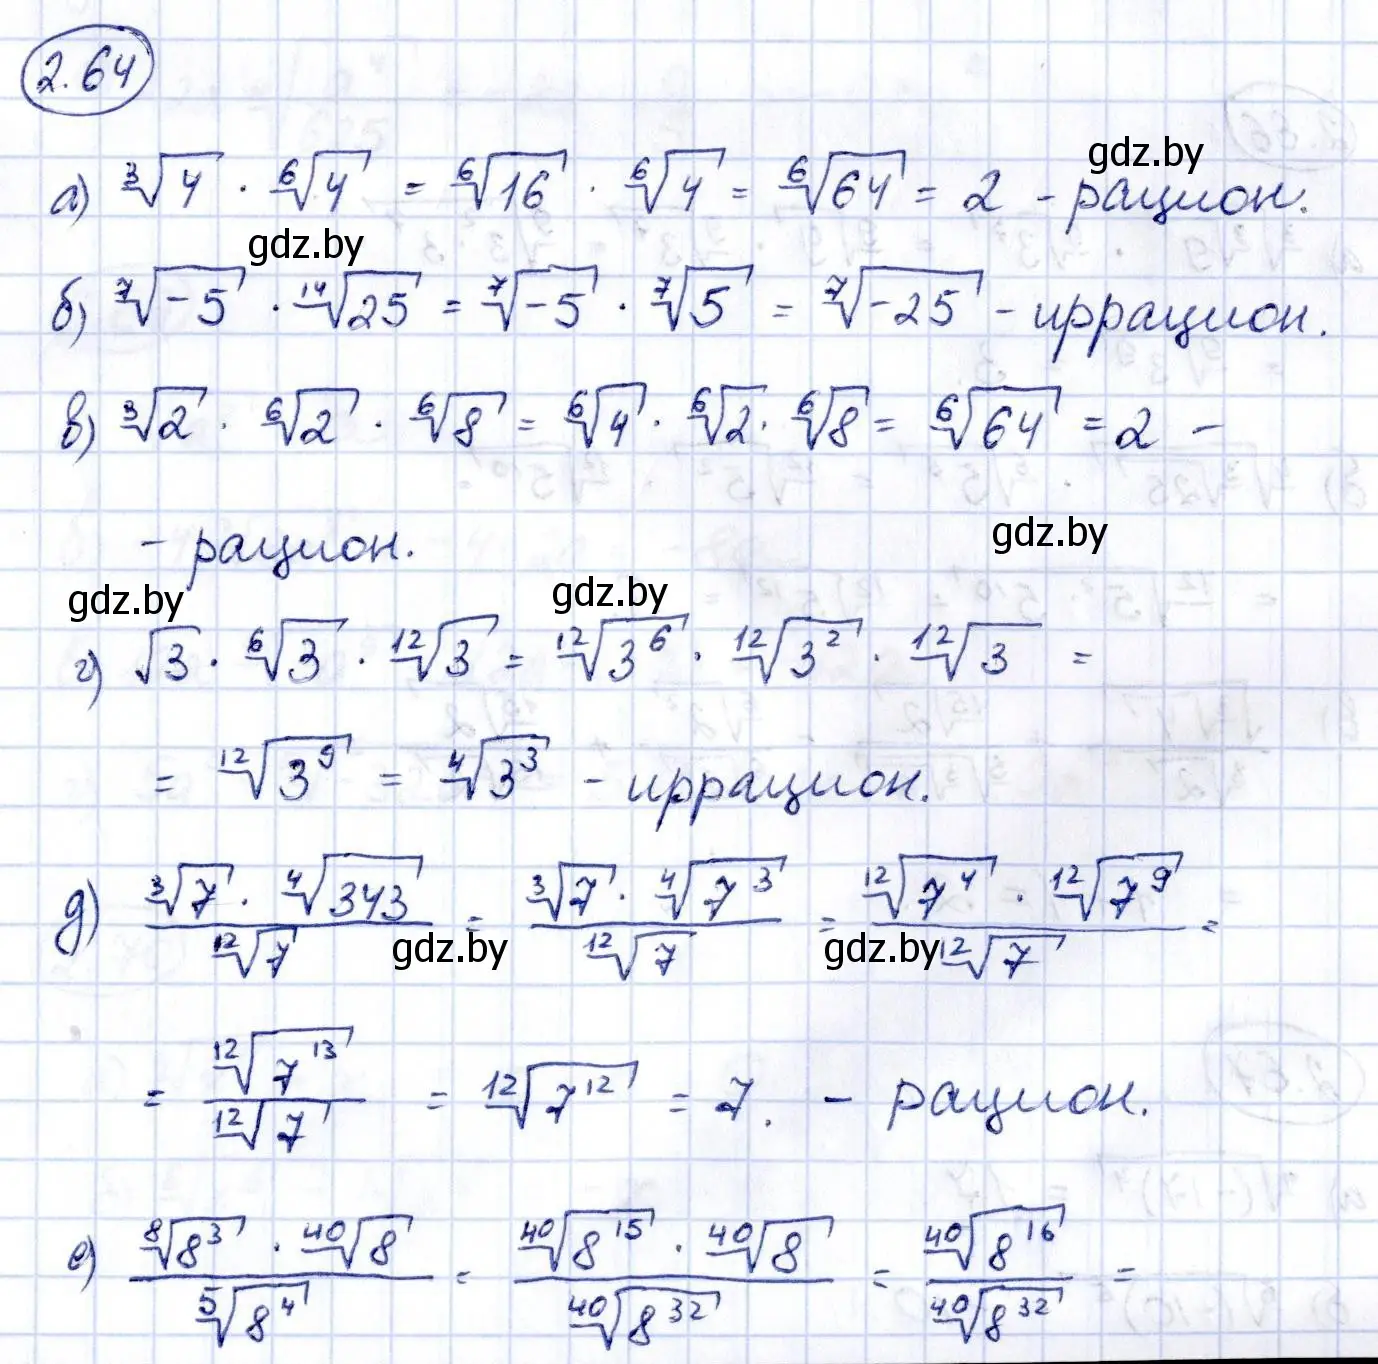 2.64
gdz.by
а) ∛4 · ⁶√4 = ⁶√16 · ⁶√4 = ⁶√64 = 2 - рацион.
gdz.by
б) ⁷√-5 · ¹⁴√25 = ⁷√-5 · ⁷√5 = ⁷√-25 - иррацион.
в) ³√2 · ⁶√2 · ⁶√8 = ⁶√4 · ⁶√2 · ⁶√8 = ⁶√64 = 2 -
- рацион.
gdz.by
gdz.by
gdz.by
г) √3 · ⁶√3 · ¹²√3 = ¹²√3⁶ · ¹²√3² · ¹²√3 =
= ¹²√3⁹ = ⁴√3³ - иррацион.
д) (³√7 · ⁴√343)/(¹²√7) = (³√7 · ⁴√7³)/(¹²√7) = (¹²√7⁴ · ¹²√7⁹)/(¹²√7) =
gdz.by
gdz.by
= (¹²√7¹³)/(¹²√7) = ¹²√7¹² = 7. - рацион.
е) (⁸√8³ · ⁴⁰√8)/(⁵√8⁴) = (⁴⁰√8¹⁵ · ⁴⁰√8)/(⁴⁰√8³²) = (⁴⁰√8¹⁶)/(⁴⁰√8³²) =